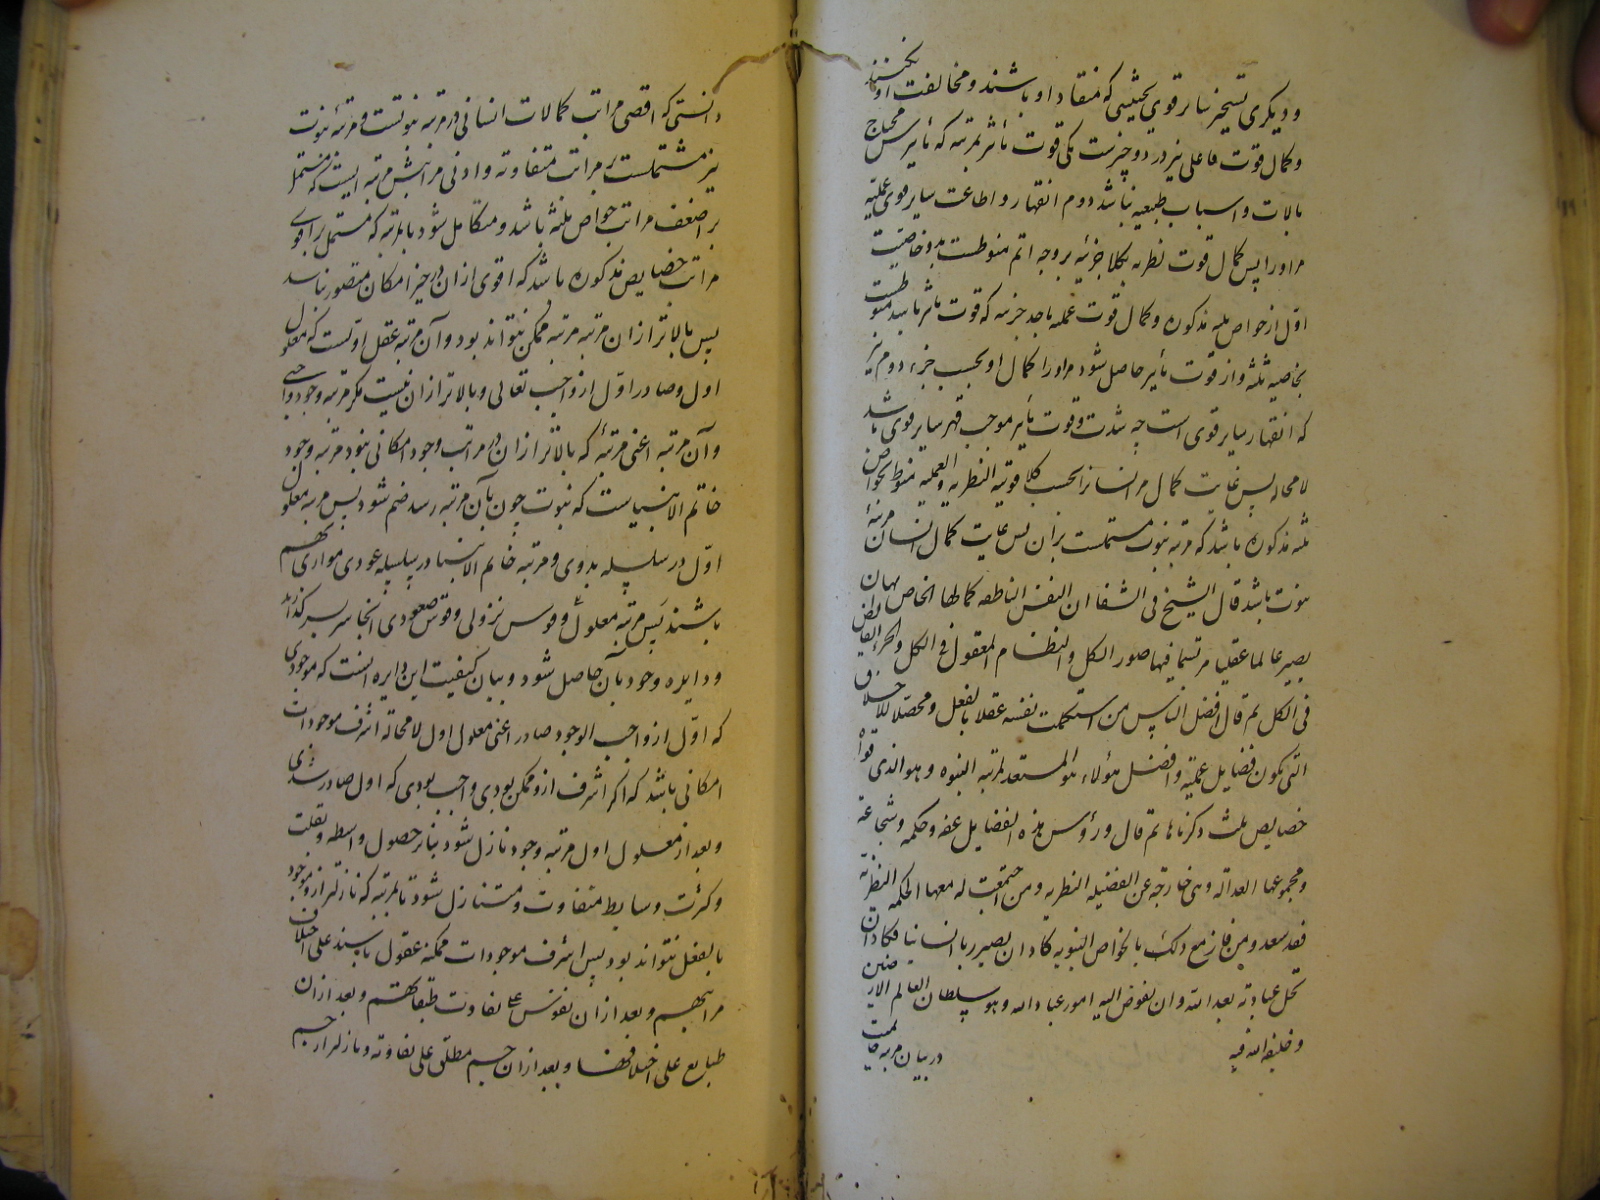 و دیکری تسخیر سایر قوی بحیثیتی که منقاد او باشند و مخالفت او نکنند
و کمال قوت فاعلی نیز در دو چیزست یکی قوت تأثر بمرتبه که تأثیرش محتاج
بالات و اسباب طبیعیه نباشد دوم انقهار و اطاعت سایر قوی عملیه
مر او را پس کمال قوت نظریه بکلا جزئیه بر وجه اتم منوطست بدو خاصیت
اول از خواص ثلثه مذکوره و کمال قوت عملیه باحد جزئیه که قوت تأثر باشد منوطست
بخاصیه ثلثه و از قوت تأثیر حاصل شود مر او را کمال او بحسب جزء دوم نیز
که انقهار سایر قوی است چه شدت و قوت تأثیر موجب قهر سایر قوی باشد
لا محاله پس غایت کمال مر انسانرا بحسب کلا قوتیه النظریه و العملیه منوط بخواص
ثلثه مذکوره باشد که مرتبه نبوت مشتملست بر آن پس غایت کمال انسان مرتبهٔ
نبوت باشد قال الشیخ فی الشفا ان النفس الناطقه کمالها الخاص بها ان
یصیر عالما عقلیا مرتسما فیها صور الکل و النظام المعقول فی الکل و الخیر الفایض
فی الکل ثم قال افضل الناس من استکملت نفسه عقلا بالفعل و محصلا للاخلاق
التی یکون فضایل عملیّه و افضل هؤلاء هو المستعد لمرتبه النبوه و هو الذی فی قواه
خصایص ثلث ذکرناها ثم قال و رؤوس هذه الفضایل عفه و حکمه و شجاعة
و مجموعها العدالة و هی خارجة عن الفضیله النظریه و من اجتمعت له معها الحکمه النظریّة
فقد سعد و من فاز مع ذلک بالخواص النبویه کاد ان یصیر ربا انسانیا فکاد ان
تحل عبادته بعد الله و ان یفوض الیه امور عباد الله و هو سلطان العالم الارضین
و خلیفة الله فیه در بیان مرتبه خاتمیت
دانستی که اقصی مراتب کمالات انسانی در مرتبه نبوتست و مرتبهٔ نبوت
نیز مشتملست بر مراتب متفاوته و ادنی مراتبش مرتبه ایست که مشتمل
بر اضعف مراتب خواص ثلثه باشد و متکامل شود تا بمرتبه که مشتمل بر اقوی
مراتب خصایص مذکوره باشد که اقوی از ان در حیز امکان متصور نباشد
پس بالاتر از ان مرتبه مرتبه ممکن نتواند بود و آن مرتبه عقل اولست که معلول
اول و صادر اوّل از واجب تعالی و بالاتر از ان نیست مکر مرتبه وجود واجبی
و آن مرتبه اعنی مرتبهٔ که بالاتر از ان در مراتب وجود امکانی نبود مرتبه وجود
خاتم الانبیاست که نبوت چون بآن مرتبه رسد ختم شود پس مرتبه معلول
اوّل در سلسله بدوی و مرتبه خاتم الانبیا در سلسله عودی موازی هم
باشند پس مرتبه معلول و قوس نزولی و قوس صعودی انجا سر بسر کذارند
و دایره وجود بآن حاصل شود و بیان کیفیت این دایره انست که موجودی
که اوّل از واجب الوجود صادر اعنی معلول اول لا محاله اشرف موجودات
امکانی باشد که اکر اشرف ازو ممکن بودی واجب بودی که اول صادر شدی
و بعد از معلول اول مرتبه وجود نازل شود بنابر حصول واسطه و بقلت
و کثرت وسایط متفاوت و متنازل شود تا بمرتبه که نازلتر ازو موجود
بالفعل نتواند بود پس اشرف موجودات ممکنه عقول باشند علی اختلاف
مراتبهم و بعد از ان نفوس علی تفاوت طبقاتهم و بعد از ان
طبایع علی اختلافها و بعد از ان جسم مطلق علی تفاوته و نازلتر از جسم